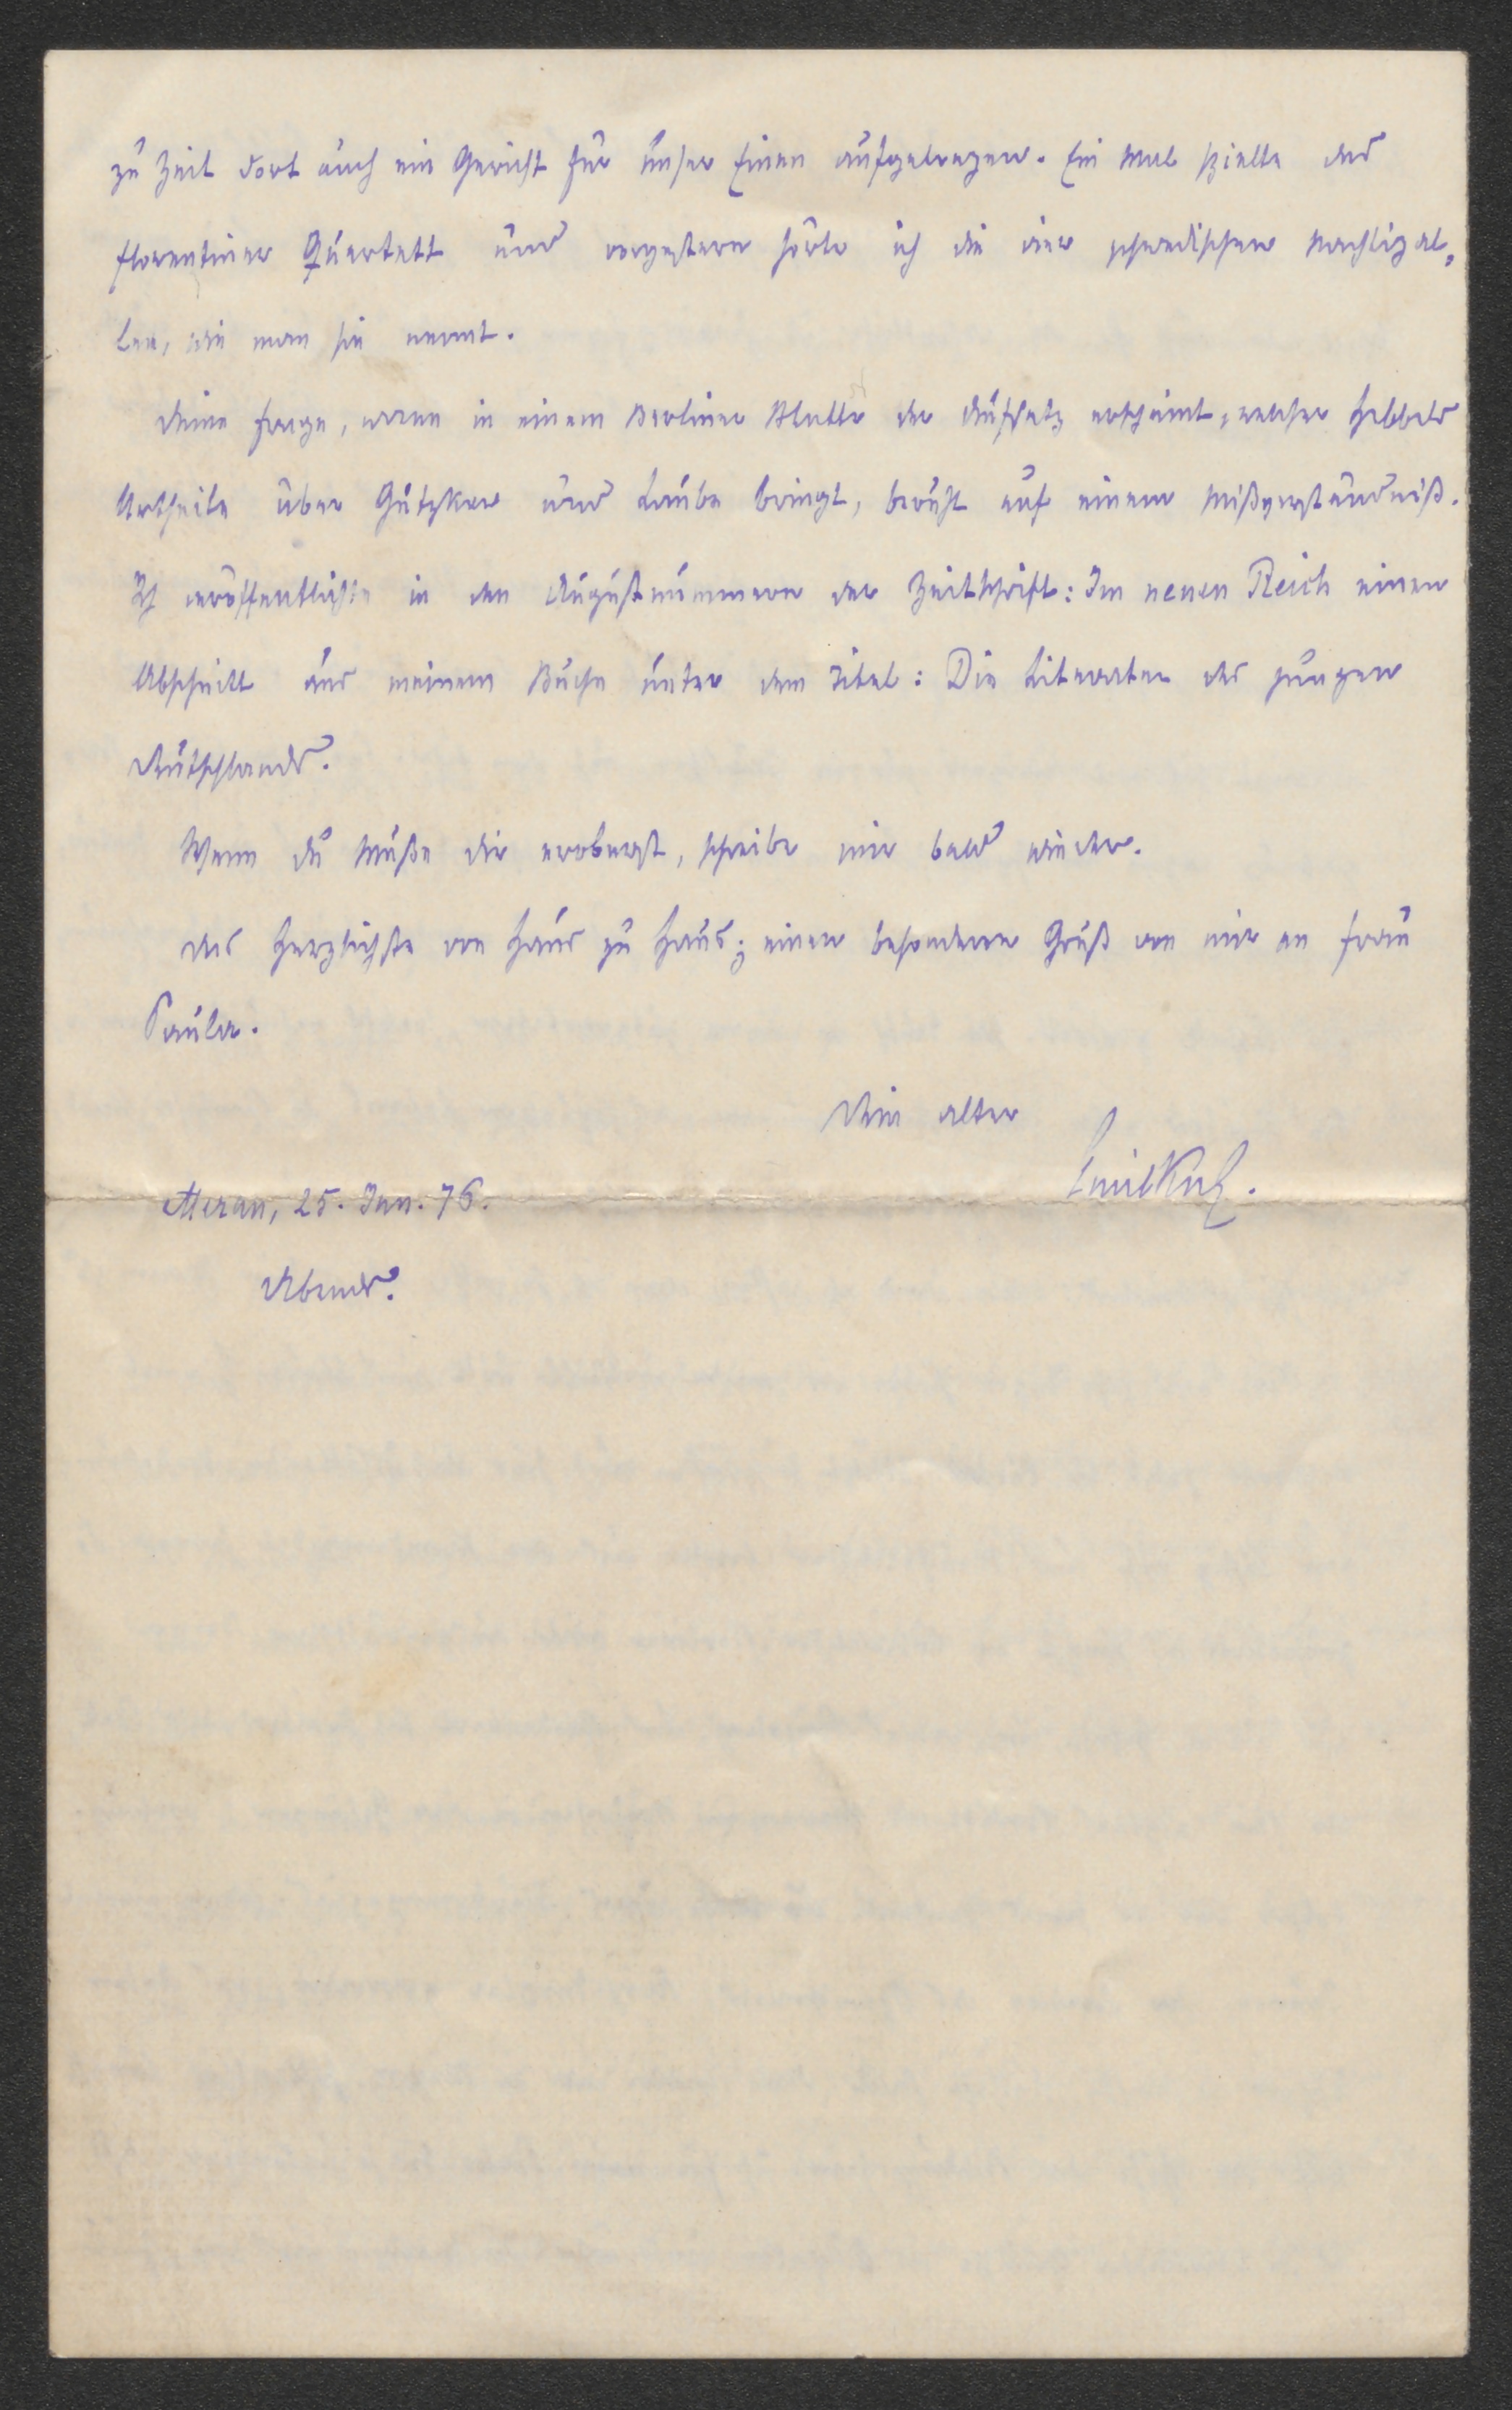 zu Zeit dort auch ein Gericht für unser Einen aufgetragen. Ein Mal spielte das
Florentiner Quartett und vorgestern hörte ich die vier schwedischen Nachtigal-
len, wie man sie nennt.
Deine Frage, wann in einem Berliner Blatte der Aufsatz erscheint, welcher Hebbels
Urtheile über Gutzkow und Laube bringt, beruht auf einem Mißverständniß.
Ich veröffentlichte in den Augustnummern der Zeitschrift: Im neuen Reich einen
Abschnitt aus meinem Buche unter dem Titel: Die Literaten des jungen
Deutschlands.
Wenn du Muße dir eroberst, schreibe mir bald wieder.
Das Herzlichste von Haus zu Haus; einen besondern Gruß von mir an Frau
Paula.
Dein alter
Emil Kuh.
Meran, 25. Jan. 76.
Abends.